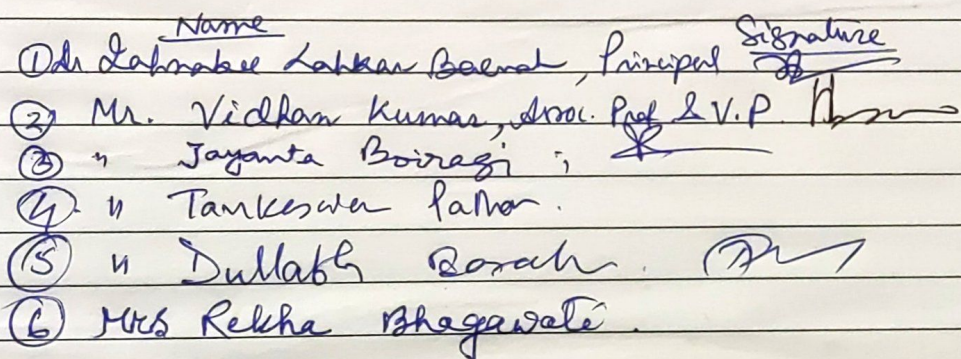 Name Signature
① Dr Lahkar Baruah, Principal
② Mr. Vidhan Kumar, Assoc. Prof & V.P.
③ " Jayanta Boiragi ;
④ " Tankeswar
⑤ " Dullabh Borah.
⑥ Mrs Rekha Bhagawati.